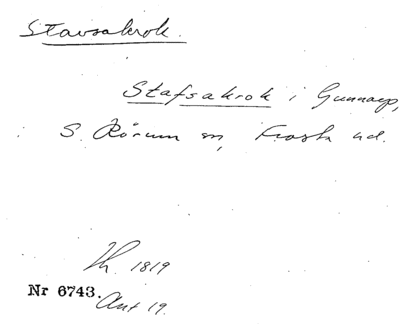 Stavsakrok.
Stafsakrok i Gunnarp,
S. Rörum sn, Frosta hd.
Th. 1819
Nr 6743.
Ant 19.